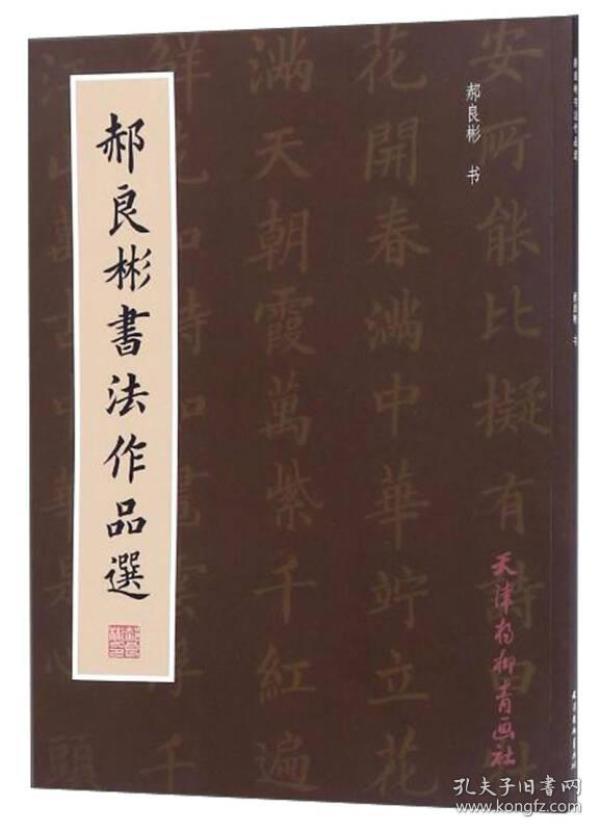 郝良彬書法作品選
郝良彬 书
天津杨柳青画社
安所能比擬有詩曰
花開春滿中華竚立花
滿天朝霞萬紫千紅遍
孔夫子旧书网
www.kongfz.com